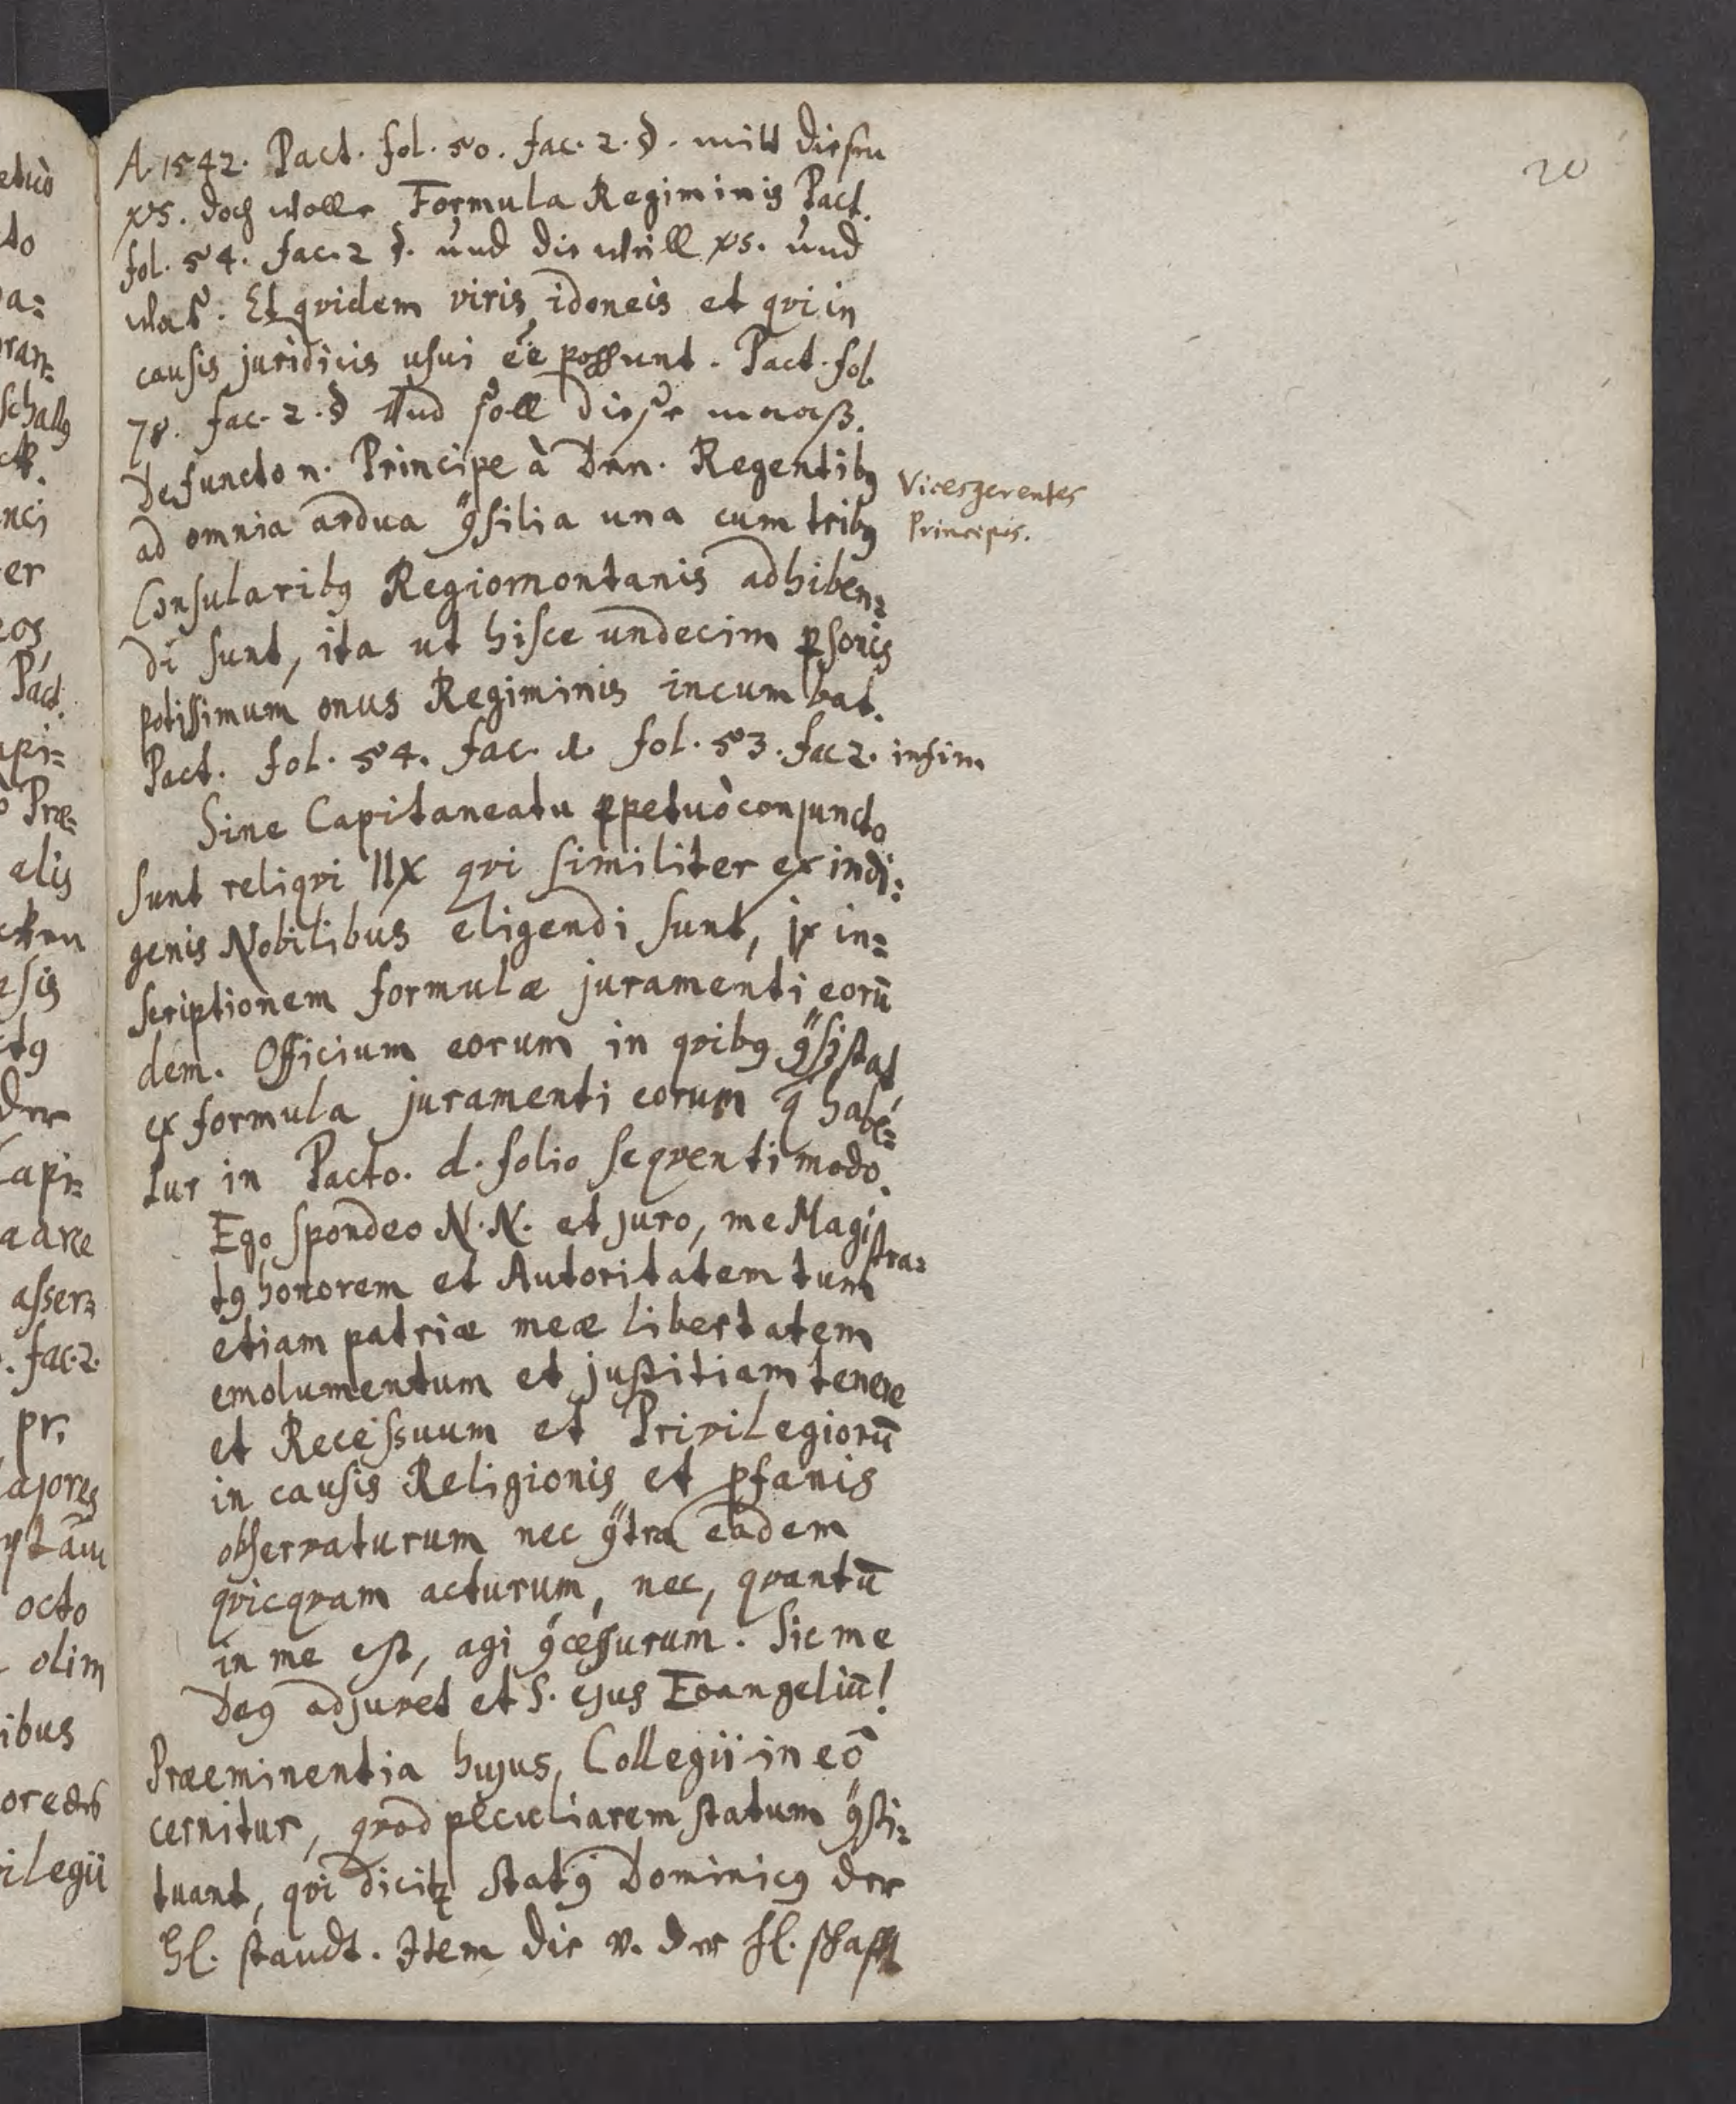 20
A. 1542. Pact. fol. 50. fac. 2. d. mitt diesen
xs. doch wolle Formula Regiminis Pact.
fol. 54. fac. 2 d. und die weill xs. und
was. Et qvidem viris idoneis et qvi in
causis juridicis usui ee̅ possunt. Pact. fol.
78. fac. 2. d Und soll diese maaß.
Defuncto n. Principe à Dnn. Regentibꝰ
ad omnia ardua ꝯsilia una cum tribꝰ
Vicesgerentes
Principis.
Consularibꝰ Regiomontanis adhiben=
di sunt, ita ut hisce undecim ꝑsonis
potissimum onus Regiminis incumbat.
Pact. fol. 54. fac. fol. 53. fac 2. infim
Sine Capitaneatu ꝑpetuò conjuncto
sunt reliqvi IIX qvi similiter ex indi=
genis Nobilibus eligendi sunt, jx in=
scriptionem formulæ juramenti eorū
dem. Officium eorum in qvibꝰ ꝯsistat
ex formula juramenti eorum q̄ habē=
tur in Pacto. d. folio seqventi modo.
Ego spondeo N. N. et juro, me Magistra=
tꝰ honorem et Autoritatem tum
etiam patriæ meæ libertatem
emolumentum et justitiam tenere
et Recessuum et Privilegiorū
in causis Religionis et ꝓfanis
observaturum nec ꝯtra eadem
qvicqvam acturum, nec, qvantū
in me est, agi ꝯcessurum. Sic me
Deꝰ adjuvet et S. ejus Evangeliū!
Præeminentia hujus Collegii in eō
cernitur, qvod peculiarem statum ꝯsti=
tuant, qvi dicitꝛ Statꝰ Dominicꝰ der
Hl. standt. Item die v. der Hl. schafft